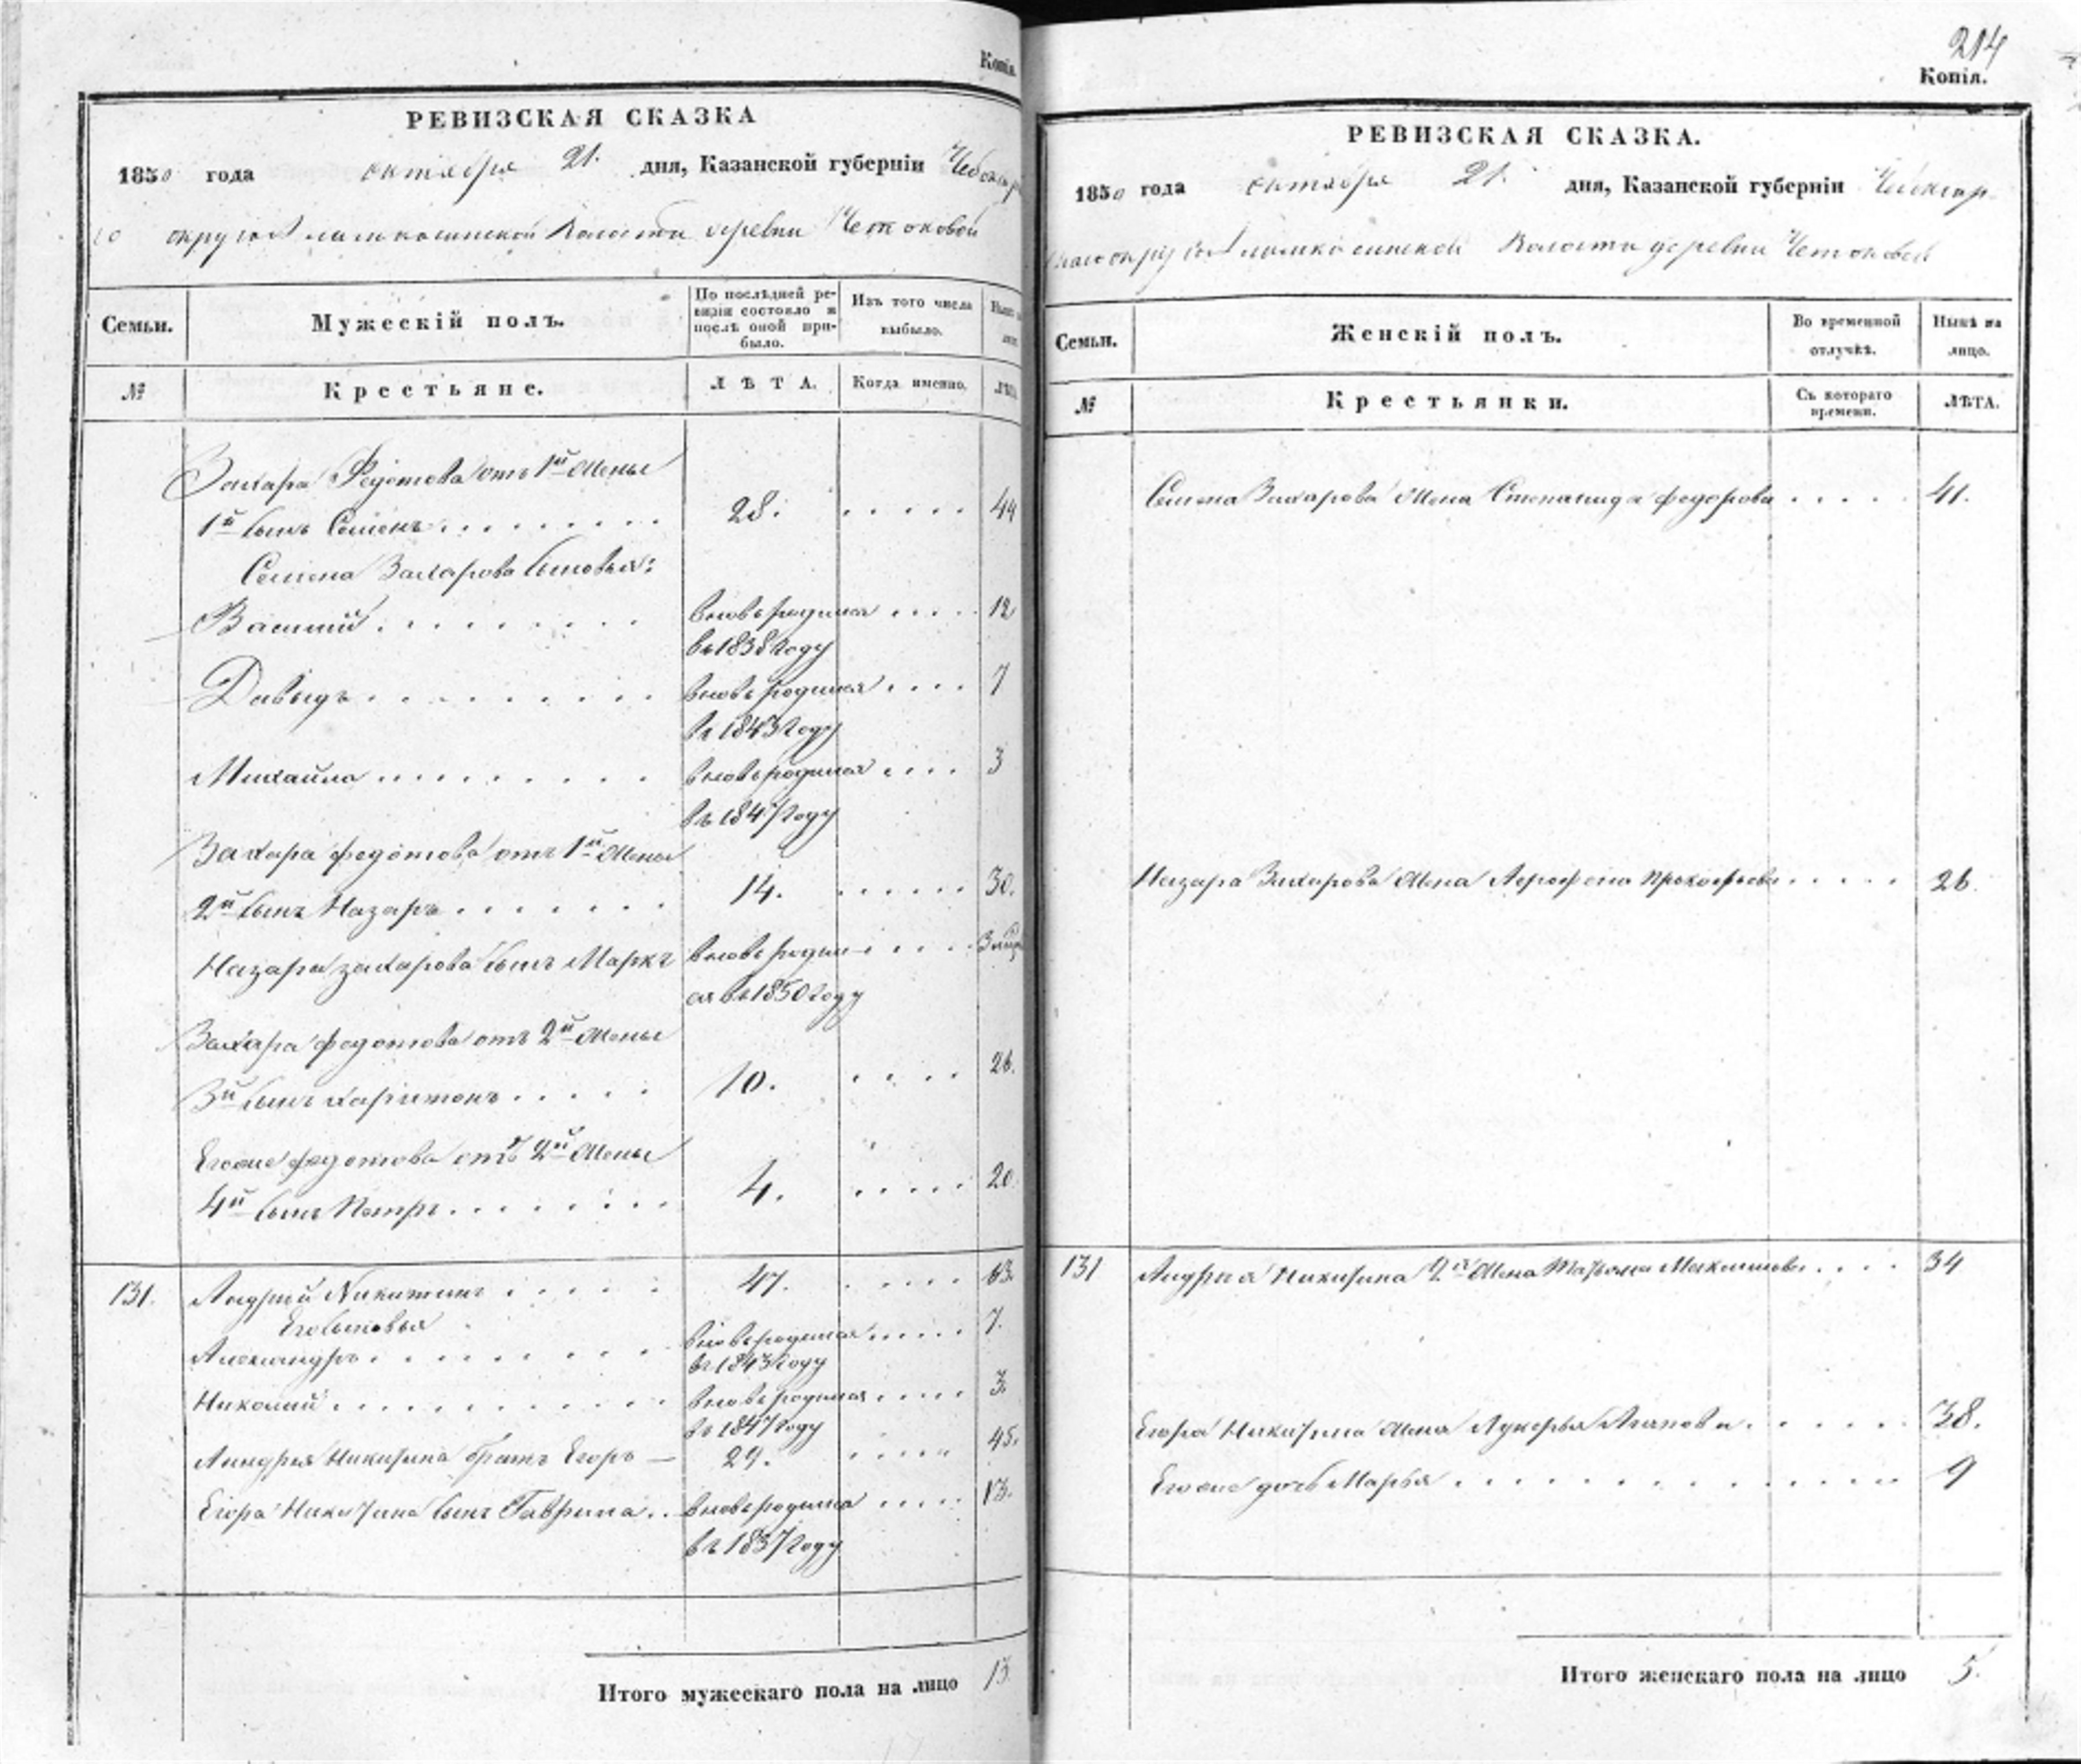 Копія.
РЕВИЗСКАЯ СКАЗКА
1850 года октября 21. дня, Казанской губерніи Чебоксар
округа волости деревни Четоковой
Семьи.
Мужескій полъ.
По послѣдней ревизіи состояло и послѣ оной прибыло.
Изъ того числа выбыло.
№
Крестьяне.
ЛѢТА.
Когда именно.
ЛѢТА
Захара Федотова отъ 1й жены
1й сынъ Семенъ 28. 44
Семена Захарова сыновья:
Василий вновь родился 12
въ 1838 году
Давыдъ вновь родился 7
въ 1843 году
Михайла вновь родился 3
въ 1847 году
Захара Федотова отъ 1й жены
2й сынъ Назаръ 14. 30.
Назара Захарова сынъ Маркъ вновь родил
ся въ 1850 году
Захара Федотова отъ 2й жены
3й сынъ Харитонъ 10. 26.
Егоже Федотова отъ 2й жены
4й сынъ Петръ 4. 20.
131. Андрей Никитинъ 47. 63.
Его сыновья
Александръ вновь родился 7.
въ 1843 году
Николай вновь родился 3.
въ 1847 году
Андрея Никитина братъ Егоръ 29. 45.
Егора Никитина сынъ Гаврила вновь родился 13.
въ 1837 году
Итого мужескаго пола на лицо 13.
214
Копія.
РЕВИЗСКАЯ СКАЗКА.
1850 года октября 21. дня, Казанской губерніи Чебоксар
скаго округа волости деревни Четоковой
Семьи.
Женскій полъ.
Во временной отлучкѣ.
Нынѣ на лицо.
№
Крестьянки.
Съ котораго времени.
ЛѢТА.
Семена Захарова жена Степанида Федорова 41.
Назара Захарова жена Прокофьева 26.
131 Андрея Никитина 2я жена Татьяна Максимова 34
Егора Никитина жена Лукерья Агапова 38.
Егоже дочь Марья 9
Итого женскаго пола на лицо 5.